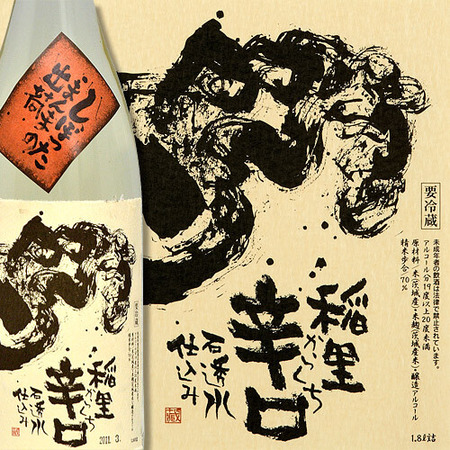 しぼった
要冷蔵
稲里
からくち
辛口
石透水
仕込み
2011. 3.
要冷蔵
未成年者の飲酒は法律で禁止されています。
アルコール分19度以上20度未満
原材料/米(茨城産)・米麹(茨城産米)・醸造アルコール
精米歩合/70%
稲里
からくち
辛口
石透水
仕込み
1.8ℓ詰